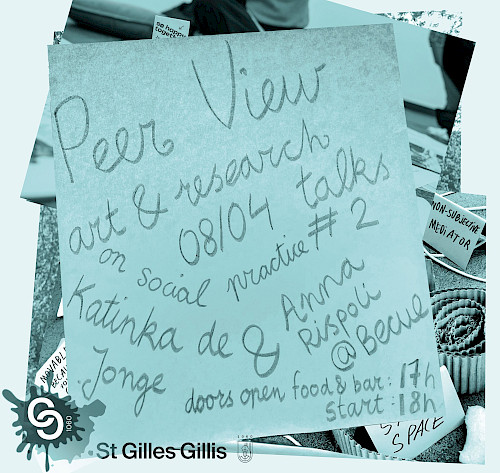 be happy
together
Peer View
art & research
08/04 talks
on social practice # 2
Katinka de Jonge
& Anna Rispoli
@Becue
doors open food & bar: 17h
start: 18h
NON-SUBJECTIVE
MEDIATOR
MOVABLE
SPACE
1060
St Gilles Gillis